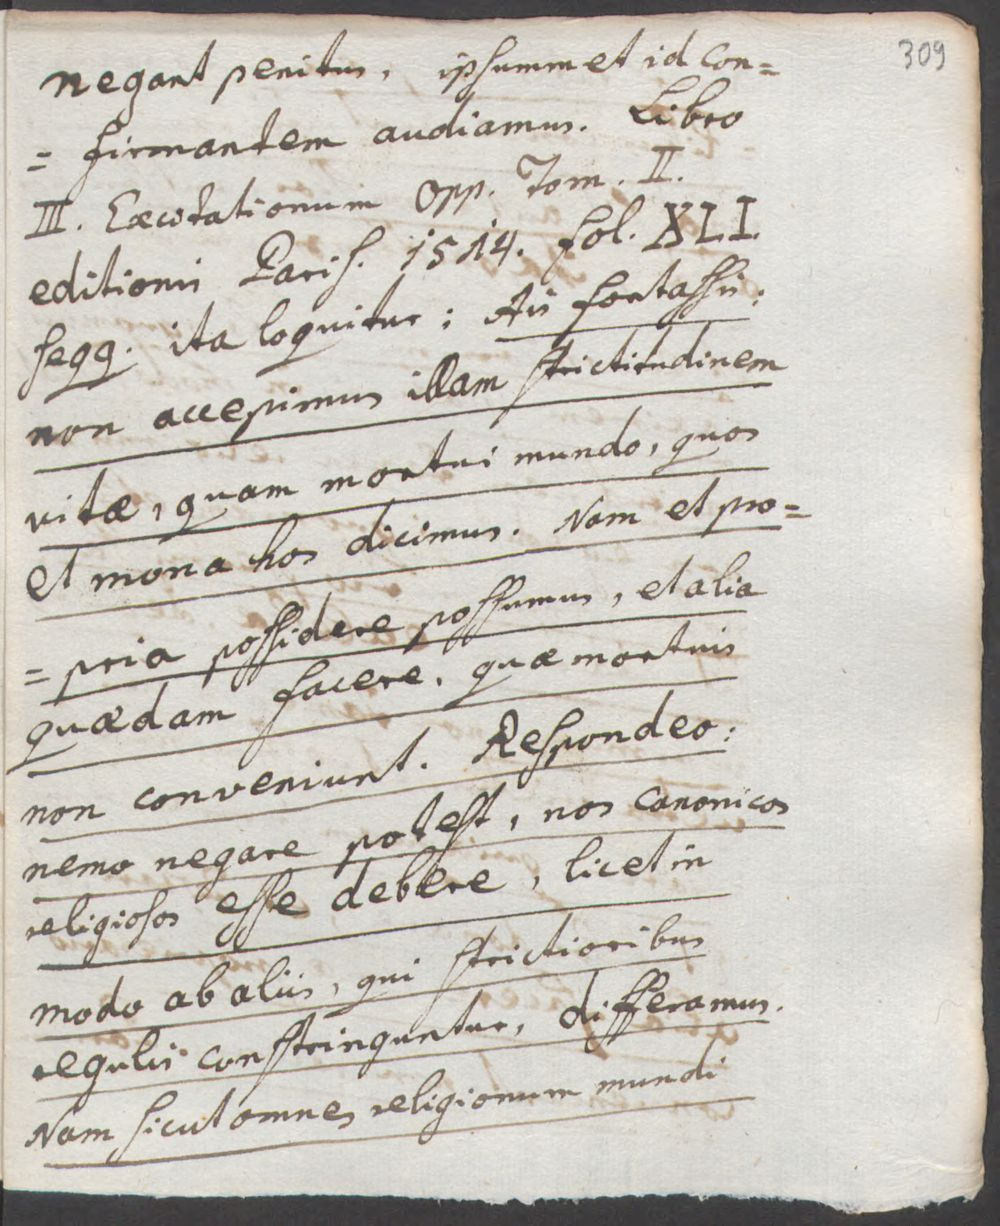 309
negant penitus, ipsummet id con=
= firmantem audiamus. Libro
III. Excitationum Opp. Tom. II.
editionis Paris. 1514. fol. XLI.
seqq. ita loquitur; Ais fortassis:
non accepimus illam strictitudinem
vitæ, quam mortui mundo, quos
et monahos dicimus. Nam et pro=
= pria possidere possumus, et alia
quædam facere, quæ mortuis
non conveniunt. Respondeo:
nemo negare potest, nos canonicos
religiosos esse debere, licet in
modo ab aliis, qui strictioribus
regulis constringuntur, differamus.
Nam sicut omnes religionum mundi